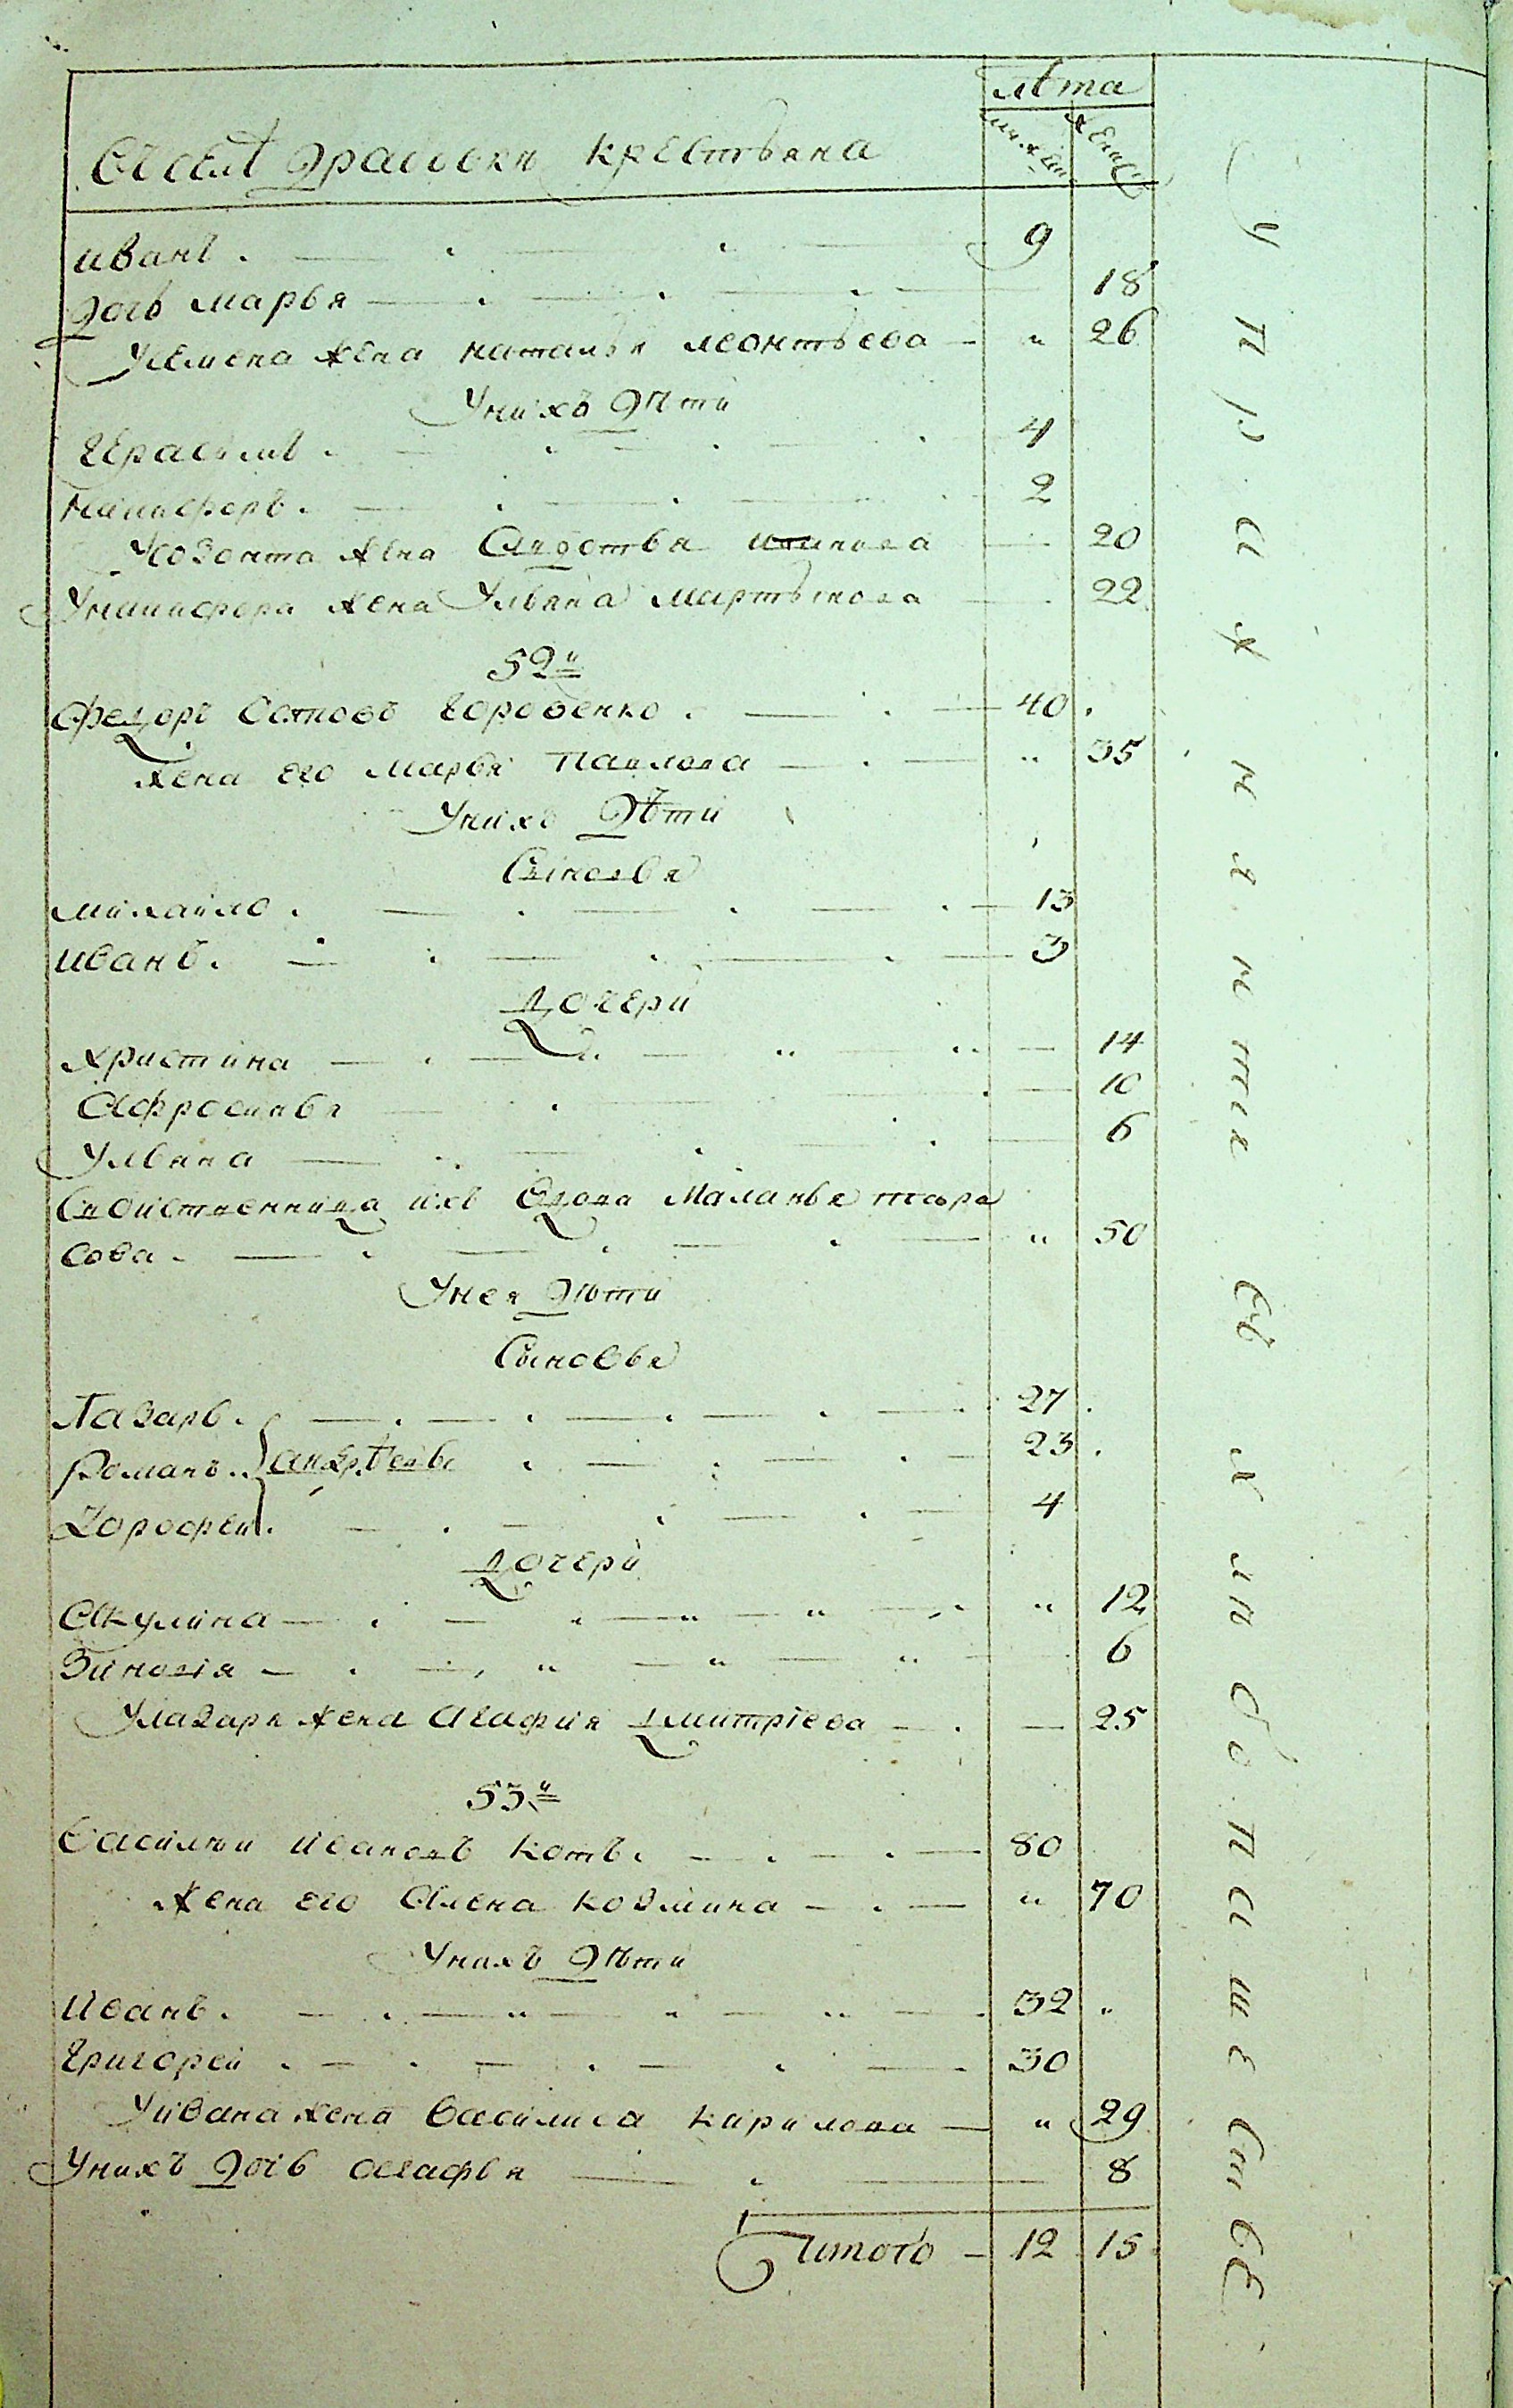 лѣта
муж: женс:
Въселѣ драловки крестьяна
иванъ. 9
дочь марья 18
Усемена жена наталья леонтьева " 26
Унихъ дѣти
Герасимъ. 4
никифоръ. 2
Усозонта жена Анастья 20
Уникифора жена Ульяна мартынова 22
52й
Федоръ Осиповъ Горобенко. 40
жена его марья Павлова " 35
Унихъ Дѣти
Сыновья
михайло. 13
иванъ. 3
Дочери
христина 14
Афросинья 10
Ульяна 6
Свойственница ихъ вдова Маланья тара
сова. " 50
Унея дѣти
Сыновья
Лазарь. 27
Романъ. андрѣевы 23
Дорофей. 4
Дочери
Акулина " 12
Зиновія 6
Улазаря жена Агафия Дмитріева 25
53й
Василий ивановъ котъ. 80
жена его Алена козмина " 70
Унихъ дѣти
Иванъ. 32
Григорей. 30
Уивана жена василиса кирилова " 29
Унихъ дочь агафья 8
итого 12 15